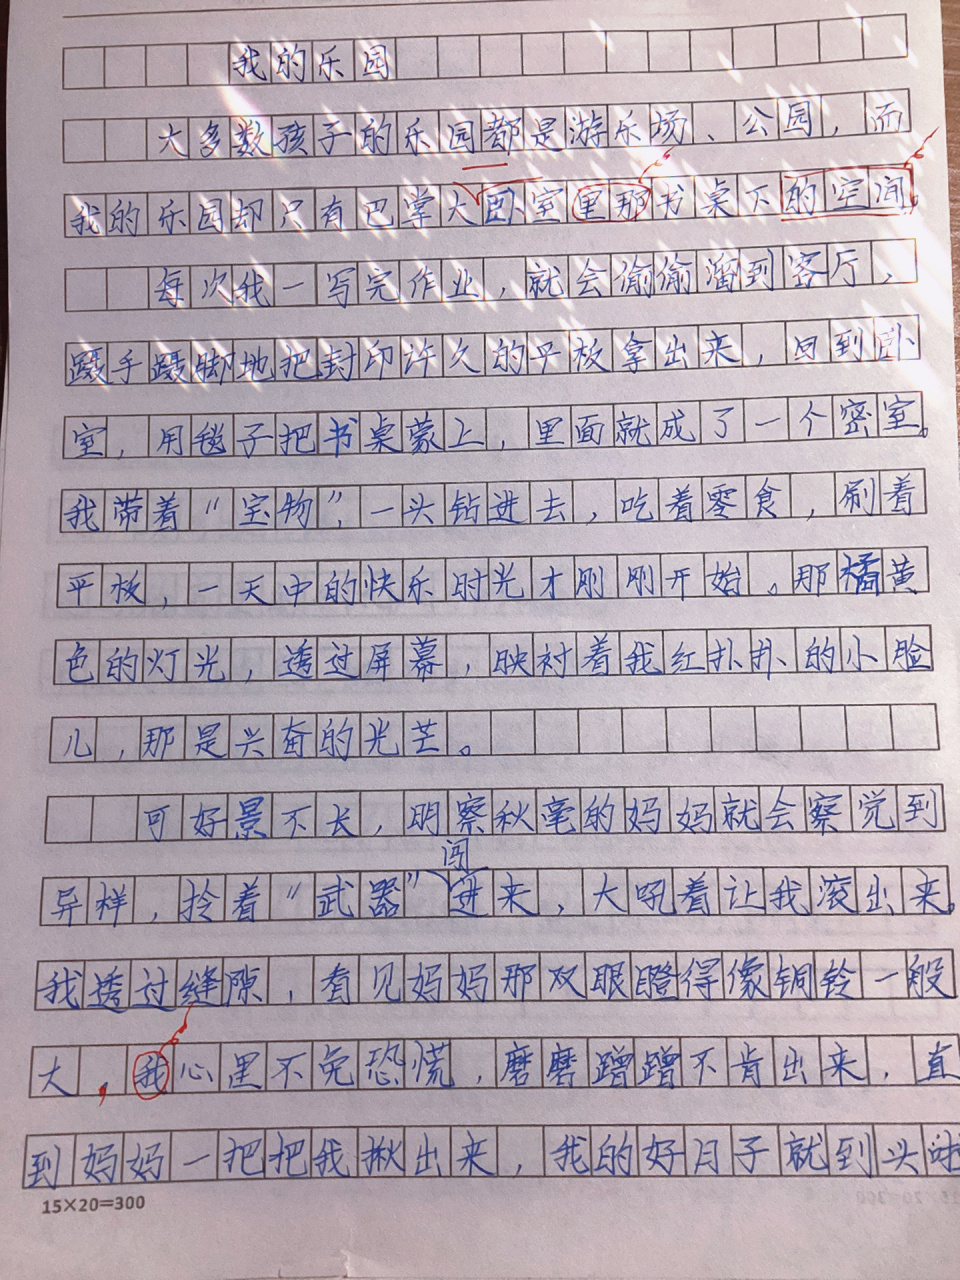 我的乐园
大多数孩子的乐园都是游乐场、公园，而
我的乐园却只有巴掌大卧室里那书桌下的空间。
每次我一写完作业，就会偷偷溜到客厅，
蹑手蹑脚地把封印许久的平板拿出来，回到卧
室，用毯子把书桌蒙上，里面就成了一个密室。
我带着“宝物”，一头钻进去，吃着零食，刷着
平板，一天中的快乐时光才刚刚开始。那橘黄
色的灯光，透过屏幕，映衬着我红扑扑的小脸
儿，那是兴奋的光芒。
可好景不长，明察秋毫的妈妈就会察觉到
闯
异样，拎着“武器”进来，大吼着让我滚出来。
我透过缝隙，看见妈妈那双眼瞪得像铜铃一般
大，我心里不免恐慌，磨磨蹭蹭不肯出来，直
到妈妈一把把我揪出来，我的好日子就到头啦
15×20=300